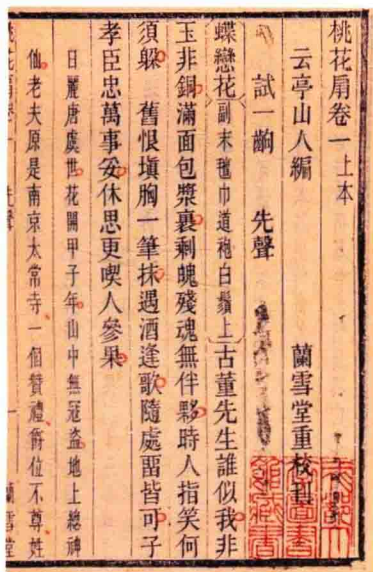 桃花扇卷一上本
云亭山人編
蘭雪堂重校刊
試一齣 先聲
蝶戀花副末氊巾道袍白鬚上古董先生誰似我非
玉非銅滿面包漿裹剩魄殘魂無伴夥時人指笑何
須躲 舊恨塡胸一筆抹遇酒逢歌隨處畱皆可子
孝臣忠萬事妥休思更喫人參果
日麗唐虞世花開甲子年山中無冦盗地上總神
仙老夫原是南京太常寺一個贊禮爵位不尊姓
蘭雪堂